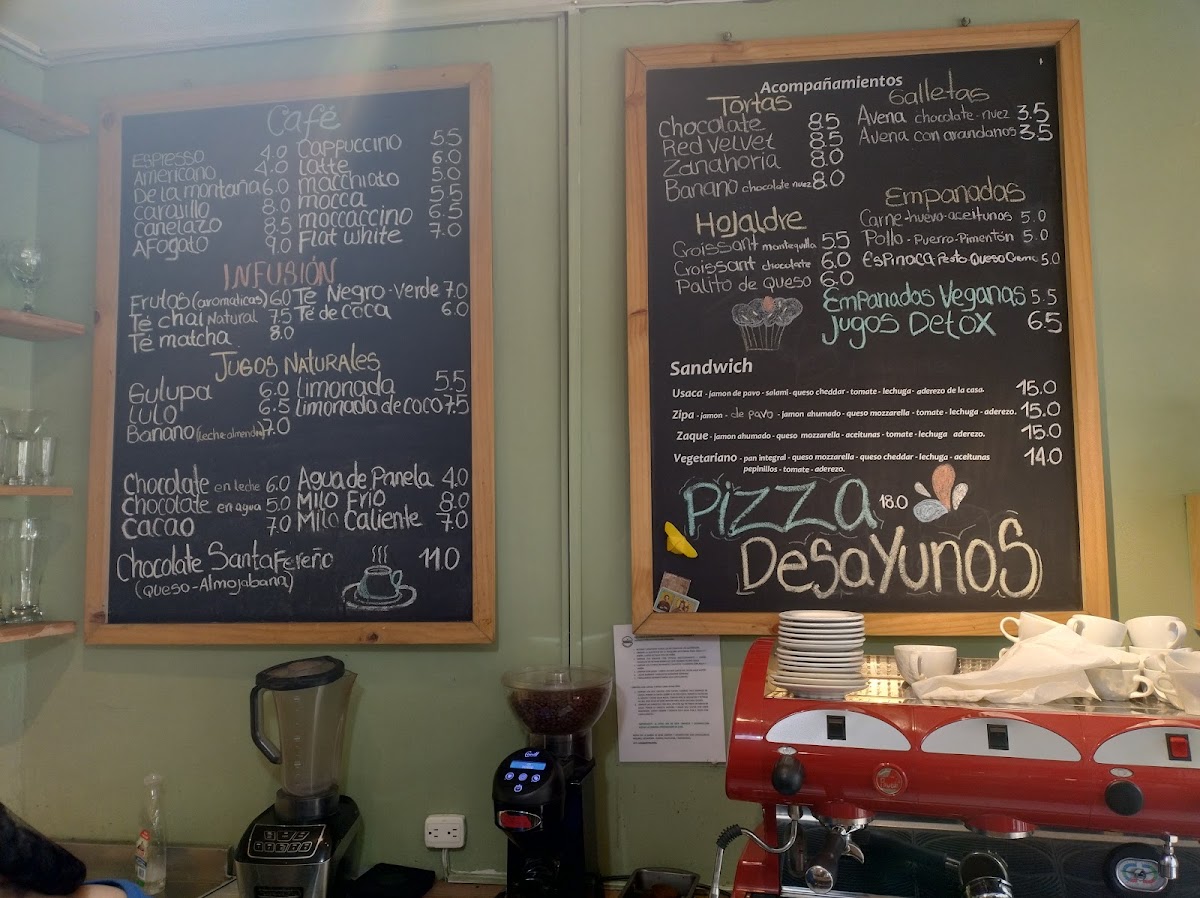 Café
Espresso 4.0
Americano 4.0
De la montaña 6.0
Carajillo 8.0
Canelazo 8.5
Afogato 9.0
Cappuccino 5.5
Latte 6.0
Macchiato 5.0
Mocca 5.5
Moccaccino 6.5
Flat white 7.0
INFUSIÓN
Frutas (aromaticas) 6.0
Té chai Natural 7.5
Té matcha 8.0
Té Negro - Verde 7.0
Té de coca 6.0
Jugos Naturales
Gulupa 6.0
Lulo 6.5
Banano (leche almendra) 7.0
Limonada 5.5
Limonada de coco 7.5
Chocolate en leche 6.0
Chocolate en agua 5.0
Cacao 7.0
Agua de Panela 4.0
Milo Frio 8.0
Milo Caliente 7.0
Chocolate Santafereño 11.0
(Queso-Almojabana)
Acompañamientos
Tortas
Chocolate 8.5
Red Velvet 8.5
Zanahoria 8.0
Banano chocolate nuez 8.0
Galletas
Avena chocolate-nuez 3.5
Avena con arandanos 3.5
Hojaldre
Croissant mantequilla 5.5
Croissant chocolate 6.0
Palito de queso 6.0
Empanadas
Carne-huevo-aceitunas 5.0
Pollo - Puerro-Pimentón 5.0
Espinaca Pesto Queso Crema 5.0
Empanadas Veganas 5.5
Jugos Detox 6.5
Sandwich
Usaca - jamon de pavo - salami - queso cheddar - tomate - lechuga - aderezo de la casa. 15.0
Zipa - jamon - de pavo - jamon ahumado - queso mozzarella - tomate - lechuga - aderezo. 15.0
Zaque - jamon ahumado - queso mozzarella - aceitunas - tomate - lechuga aderezo. 15.0
Vegetariano - pan integral - queso mozzarella - queso cheddar - lechuga - aceitunas 14.0
pepinillos - tomate - aderezo.
Pizza 18.0
Desayunos